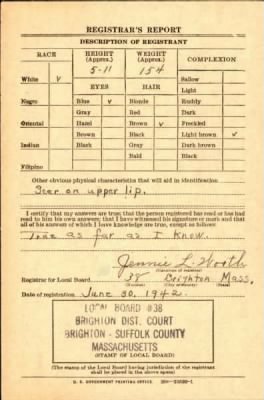 REGISTRAR'S REPORT
DESCRIPTION OF REGISTRANT
RACE HEIGHT (Approx.) WEIGHT (Approx.) COMPLEXION
5-11 154 Sallow
White ✓ EYES HAIR Light
Negro Blue ✓ Blonde Ruddy
Gray Red Dark
Oriental Hazel Brown ✓ Freckled
Brown Black Light brown ✓
Indian Black Gray Dark brown
Bald Black
Filipino
Other obvious physical characteristics that will aid in identification
Scar on upper lip.
I certify that my answers are true; that the person registered has read or has had
read to him his own answers; that I have witnessed his signature or mark and that
all of his answers of which I have knowledge are true, except as follows:
True as far as I know.
Jennie L. Worth
(Signature of registrar)
Registrar for Local Board 38 Brighton Mass.
(Number) (City or county) (State)
Date of registration June 30, 1942
LOCAL BOARD #38
BRIGHTON DIST. COURT
BRIGHTON - SUFFOLK COUNTY
MASSACHUSETTS
(STAMP OF LOCAL BOARD)
(The stamp of the Local Board having jurisdiction of the registrant
shall be placed in the above space)
U. S. GOVERNMENT PRINTING OFFICE